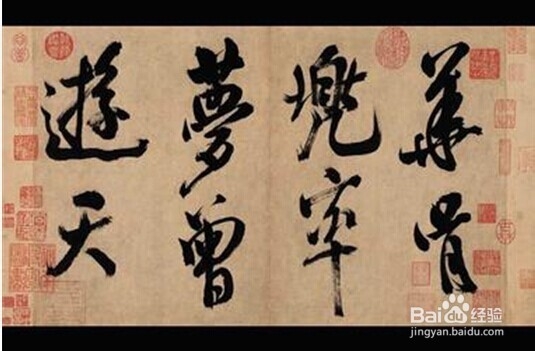 華胥
兜率
夢曾
遊天
Bai du 经验
jingyan.baidu.com